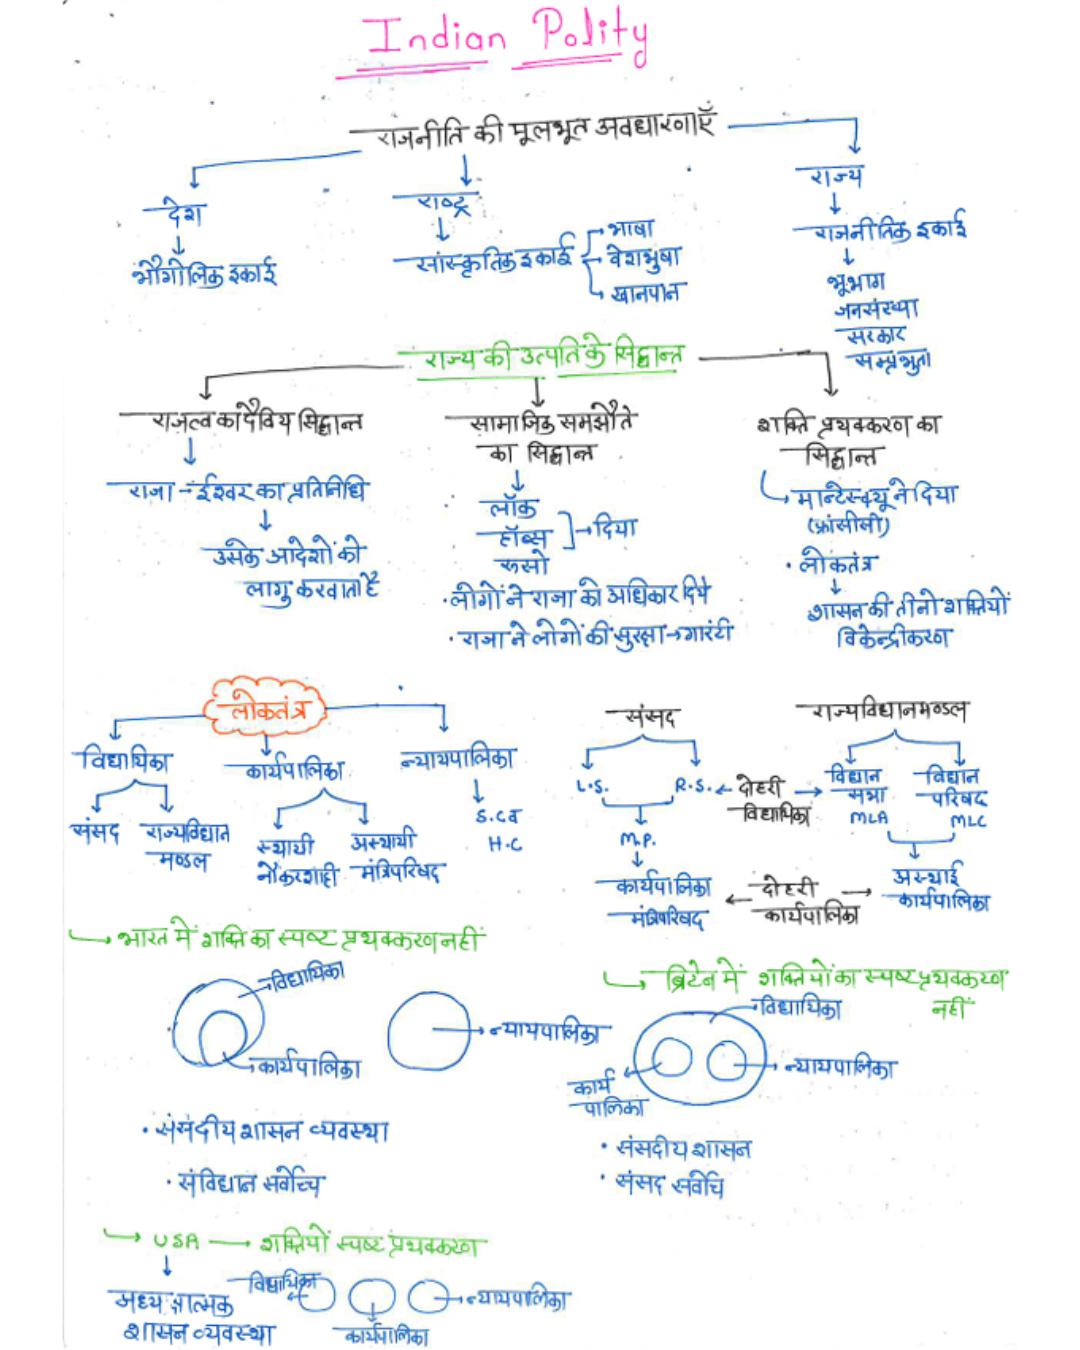 Indian Polity
राजनीति की मूलभूत अवधारणाएँ
देश
भौगोलिक इकाई
राष्ट्र
सांस्कृतिक इकाई
भाषा
वेशभुषा
खानपान
राज्य
राजनीतिक इकाई
भूभाग
जनसंख्या
सरकार
सम्प्रभुता
राज्य की उत्पति के सिद्धान्त
राजत्व का दैविय सिद्धान्त
राजा - ईश्वर का प्रतिनिधि
उसके आदेशों को
लागु करवाता है
सामाजिक समझौते
का सिद्धान्त
लॉक
हॉब्स
रूसो
दिया
• लोगों ने राजा को अधिकार दिये
• राजा ने लोगों की सुरक्षा → गारंटी
शक्ति प्रथक्करण का
सिद्धान्त
मान्टेस्क्यू ने दिया
(फ्रांसीसी)
• लोकतंत्र
शासन की तीनो शक्तियों
विकेन्द्रीकरण
लोकतंत्र
विधायिका
संसद
राज्यविधान
मण्डल
कार्यपालिका
स्थायी
नौकरशाही
अस्थायी
मंत्रिपरिषद
न्यायपालिका
S.C व
H.C
संसद
L.S.
R.S.
दोहरी
विधायिका
M.P.
कार्यपालिका
मंत्रिपरिषद
राज्यविधानमण्डल
विधान
सभा
MLA
विधान
परिषद
MLC
अस्थाई
कार्यपालिका
दोहरी
कार्यपालिका
भारत में शक्ति का स्पष्ट प्रथक्करण नहीं
विधायिका
कार्यपालिका
न्यायपालिका
• संसंदीय शासन व्यवस्था
• संविधान सर्वोच्च
ब्रिटेन में शक्तियों का स्पष्ट प्रथक्करण
नहीं
विधायिका
कार्य
पालिका
न्यायपालिका
• संसदीय शासन
• संसद सर्वोच
USA → शक्तियों स्पष्ट प्रथक्करण
विधायिका
कार्यपालिका
न्यायपालिका
शासन व्यवस्था